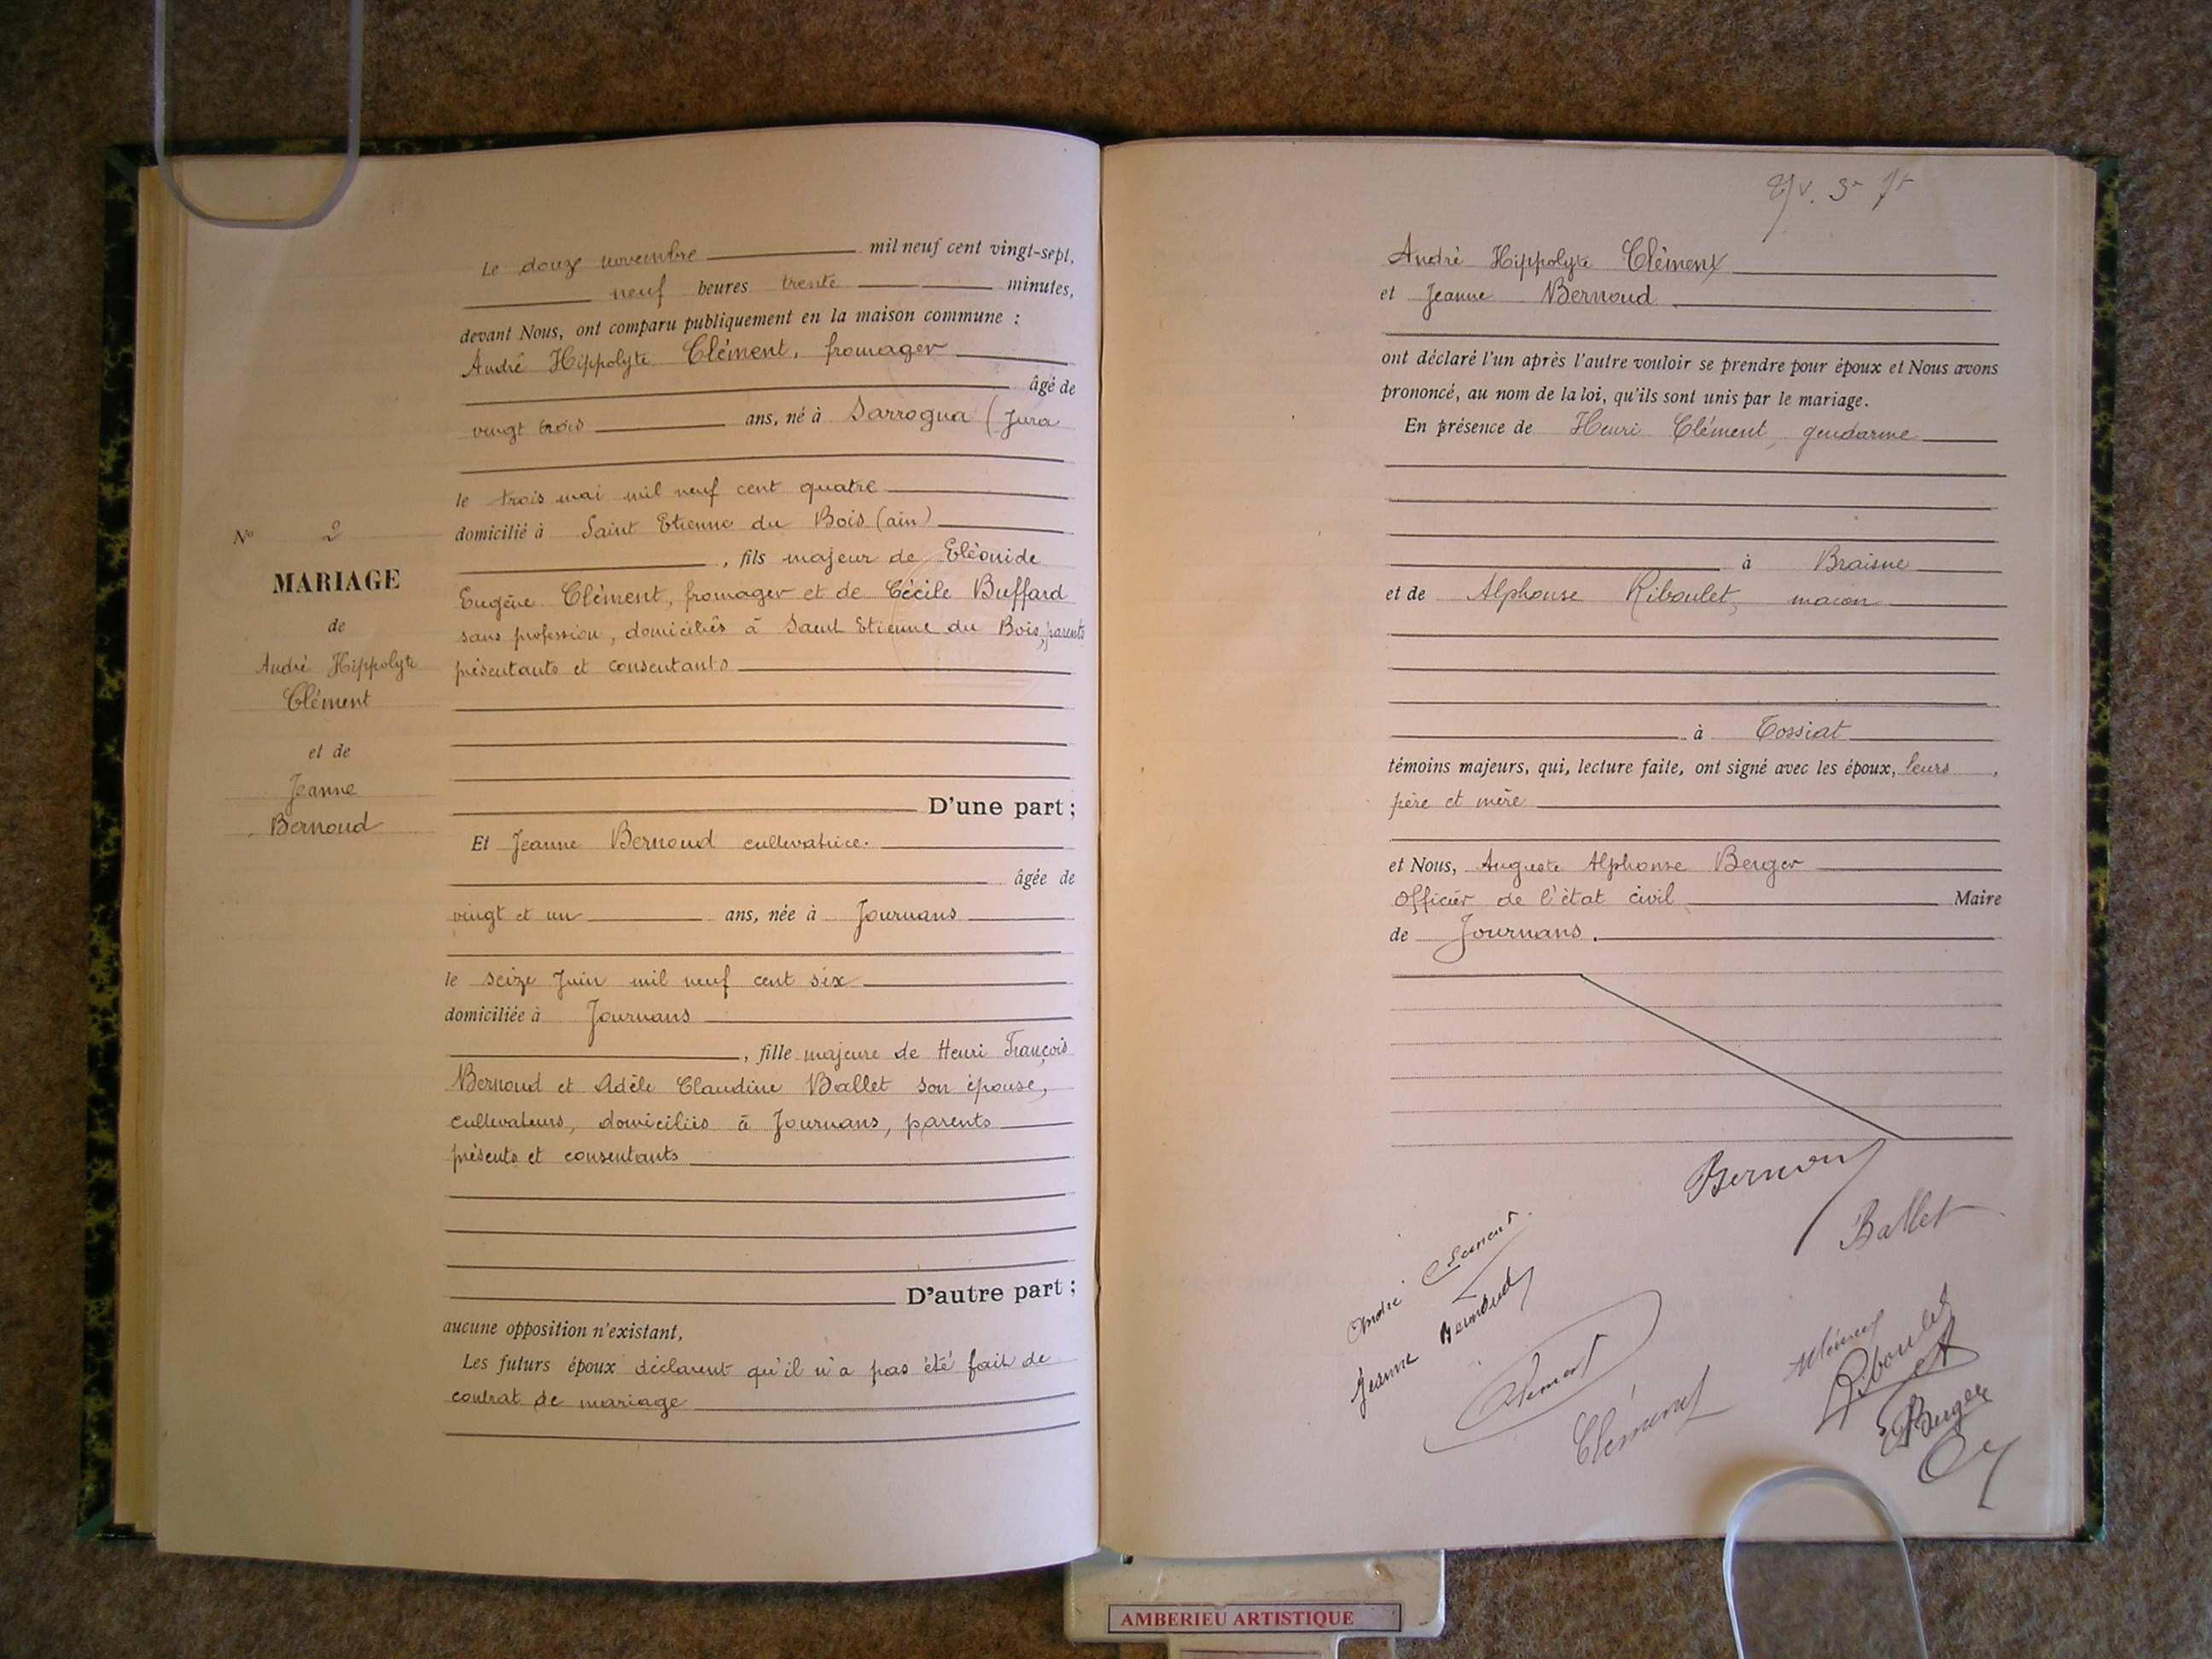 Le douze novembre mil neuf cent vingt-sept,
neuf heures trente minutes,
devant Nous, ont comparu publiquement en la maison commune :
André Hippolyte Clément, fromager
âgé de
vingt trois ans, né à Sarrogna (Jura
le trois mai mil neuf cent quatre
domicilié à Saint Etienne du Bois (ain)
, fils majeur de Eléonide
Eugène Clément, fromager et de Cécile Buffard
sans profession, domiciliés à Saint Etienne du Bois, parents
présentants et consentants
D'une part ;
Et Jeanne Bernoud cultivatrice.
âgée de
vingt et un ans, née à Journans
le seize Juin mil neuf cent six
domiciliée à Journans
, fille majeure de Henri François
Bernoud et Adèle Claudine Ballet son épouse,
cultivateurs, domiciliés à Journans, parents
présents et consentants
D'autre part ;
aucune opposition n'existant,
Les futurs époux déclarent qu'il n'a pas été fait de
contrat de mariage
No 2
MARIAGE
de
André Hippolyte
Clément
et de
Jeanne
Bernoud
André Hippolyte Clément
et Jeanne Bernoud
ont déclaré l'un après l'autre vouloir se prendre pour époux et Nous avons
prononcé, au nom de la loi, qu'ils sont unis par le mariage.
En présence de Henri Clément, gendarme
à Braisne
et de Alphonse Riboulet, macon
à Tossiat
témoins majeurs, qui, lecture faite, ont signé avec les époux, leurs ,
père et mère
et Nous, Auguste Alphonse Berger
Officier de l'état civil Maire
de Journans.
Bernoud
Ballet
André Clément
Jeanne Bernoud
Clément
Clément
Clément
Riboulet
Berger
AMBERIEU ARTISTIQUE